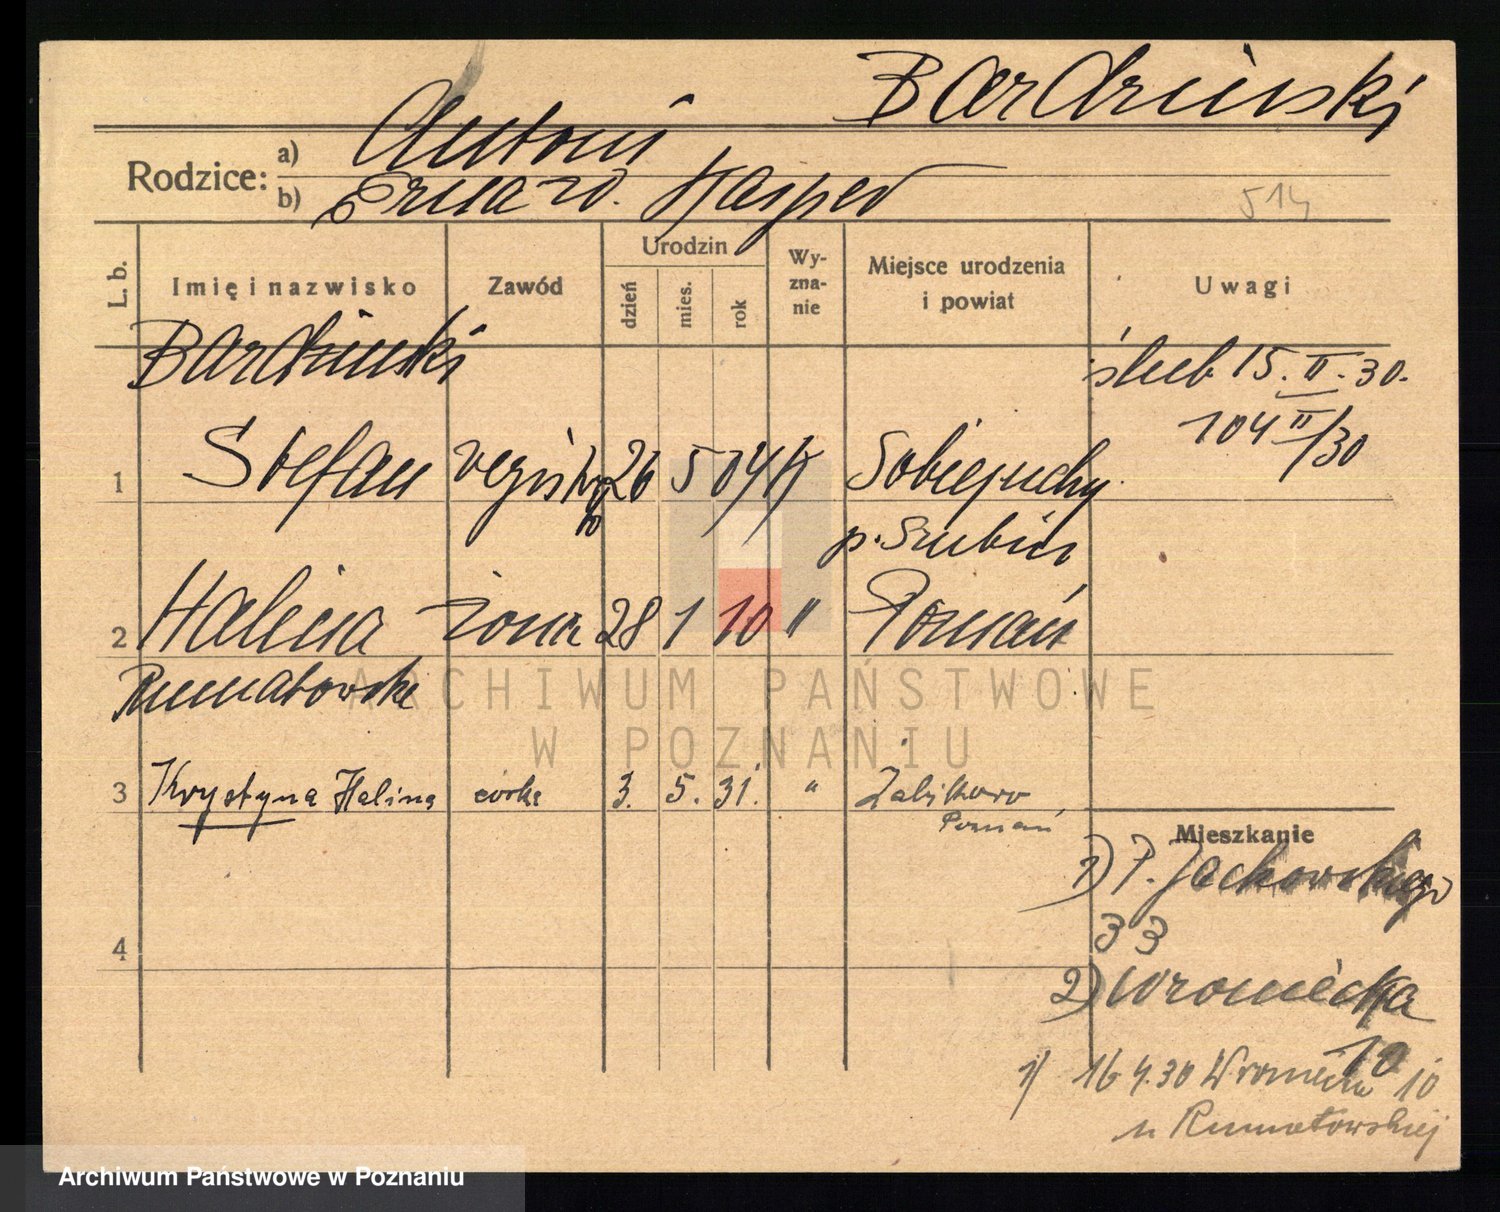 Bardziński
Rodzice: a) Antoni
b) Erna z d. Kasper
514
L. b. Imię i nazwisko Zawód Urodzin dzień mies. rok Wyznanie Miejsce urodzenia i powiat Uwagi
Bardziński
ślub 15. II. 30.
104 II/30
1 Stefan 26 5 04 K Sobiejuchy
p. Szubin
2 Halina żona 28 1 10 " Poznań
Rumatowska
3 Krystyna Halina córka 3. 5. 31. " Żabikowo
Poznań
Mieszkanie
1) P. Jackowskiego
33
4
2) Wroniecka
10
1) 16 4.30 Wroniecka 10
u Rumatowskiej
ARCHIWUM PAŃSTWOWE
W POZNANIU
Archiwum Państwowe w Poznaniu